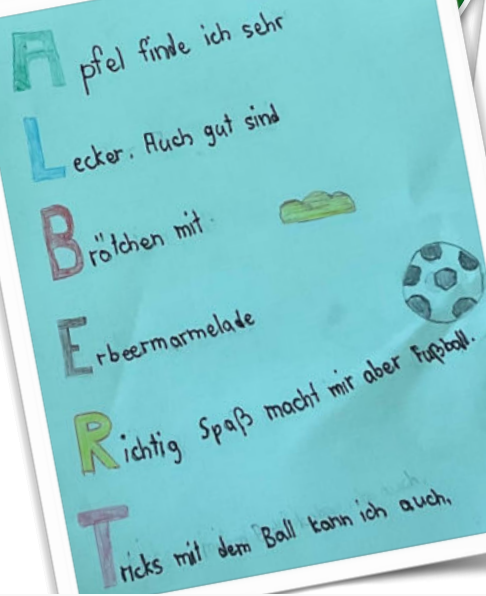 Apfel finde ich sehr
Lecker. Auch gut sind
Brötchen mit
Erbeermarmelade
Richtig Spaß macht mir aber Fußball.
Tricks mit dem Ball kann ich auch.